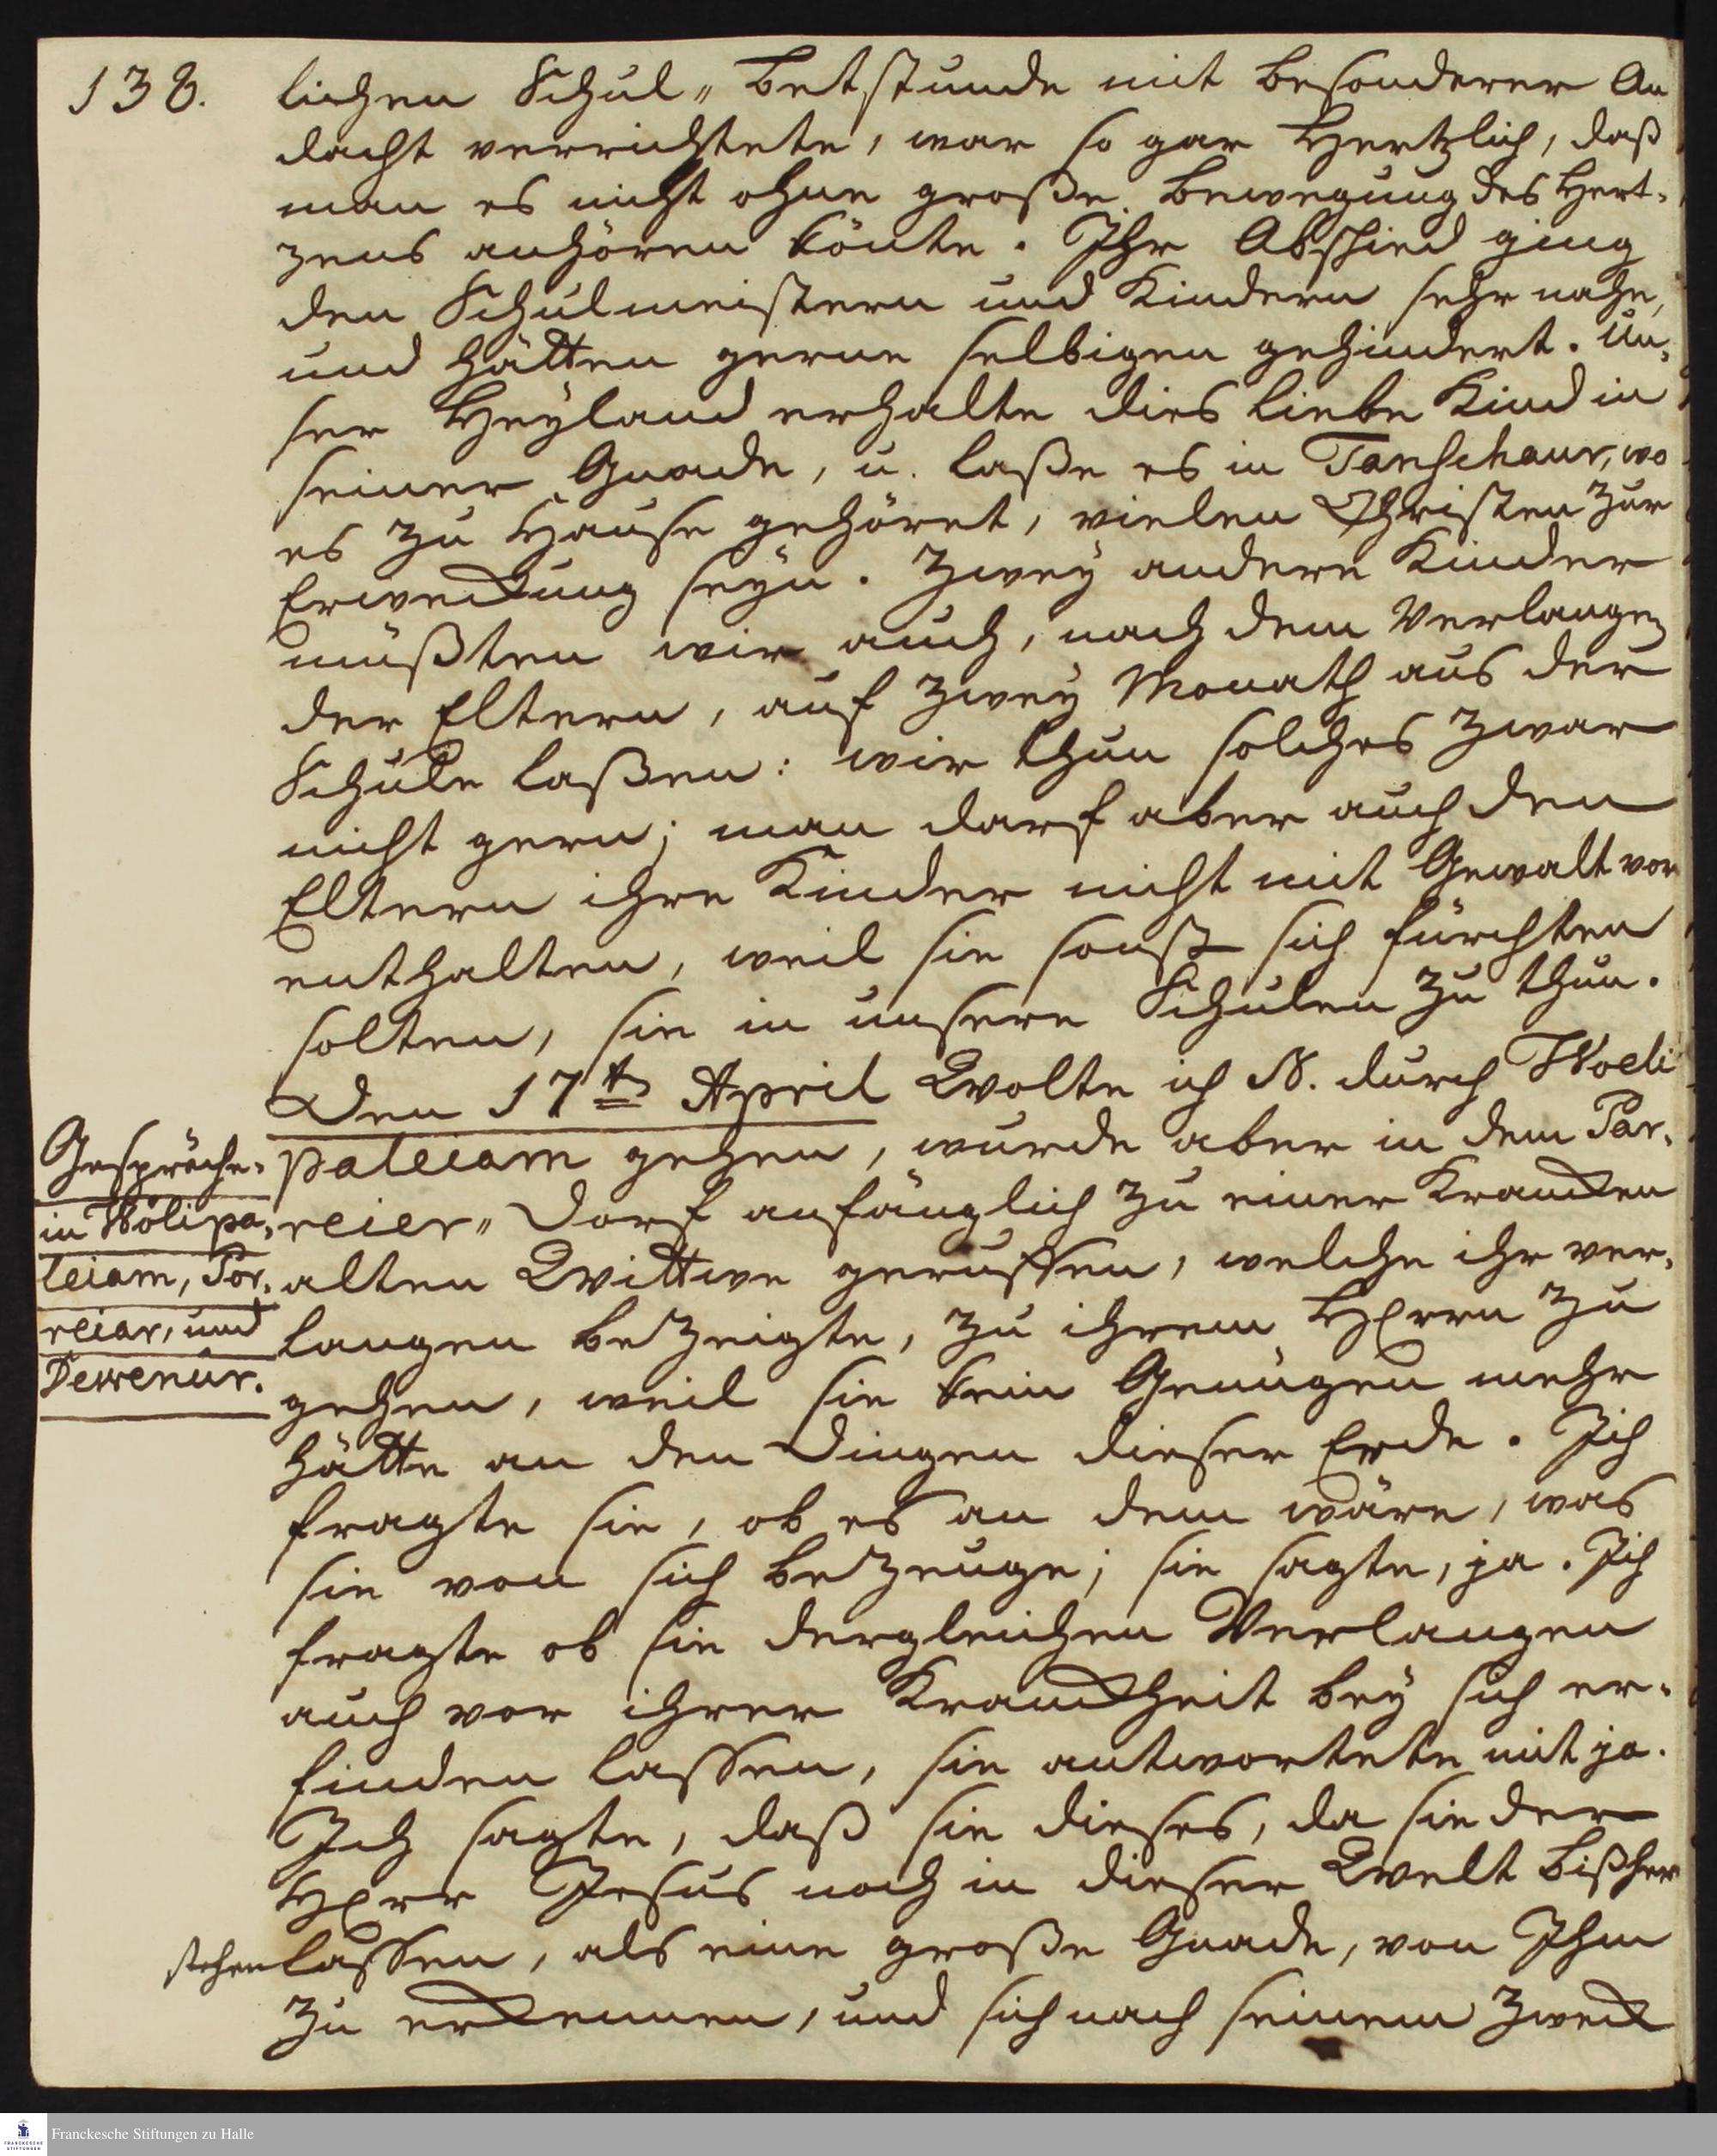 138.
lichen Schul„ Betstunde mit besonderer An
dacht verrichtete, war so gar Hertzlich, daß
man es nicht ohne große Bewegung des Hert-
zens anhören könte. Ihr Abschied ging
den Schulmeistern und Kindern sehr nahe,
und hätten gerne selbigen gehindert. Un-
ser Heyland erhalte dies liebe Kind in
seiner Gnade, u. laße es in Tanschaur, wo
es zu Hause gehöret, vielen Christen zur
Erweckung seyn. Zwey andere Kinder
müßten wir auch, nach dem Verlangen
der Eltern, auf zwey Monath aus der
Schule laßen: wir thun solches zwar
nicht gern; man darf aber auch den
Eltern ihre Kinder nicht mit Gewalt vor
enthalten, weil sie sonst sich fürchten
solten, sie in unsere Schulen zu thun.
Den 17t April Wolte ich N. durch Woeli
paleiam gehen, wurde aber in dem Par-
reier„ Dorf anfänglich zu einer Krancken
alten Wittwe geruffen, welche ihr ver-
langen bezeigte, zu ihrem HErrn zu
gehen, weil sie kein Genügen mehr
hätte an den Dingen dieser Erde. Ich
fragte sie, ob es an dem wäre, was
sie von sich bezeuge; sie sagte, ja. Ich
fragte ob sie dergleichen Verlangen
auch vor ihrer Kranckheit bey sich er-
finden lassen, sie antwortete mit ja.
Ich sagte, daß sie dieses, da sie der
HErr Jesus noch in dieser Welt bißher
stehen lassen, als eine große Gnade, von Ihm
zu erkennen, und sich nach seinem Zweck
Gespräche-
in Wölipa-
leiam, Por-
reiar, und
Dewenúr.
Franckesche Stiftungen zu Halle